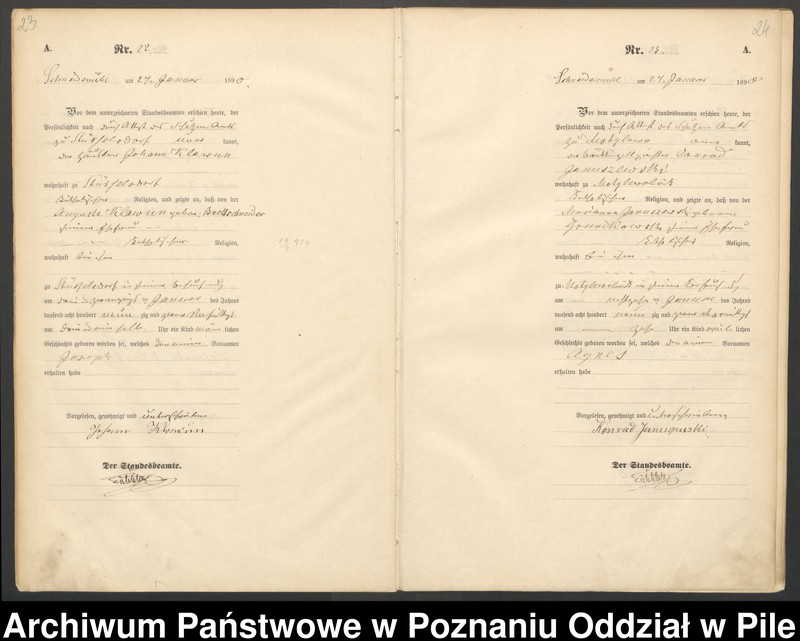 23
A.
Nr. 22.
Schneidemühl am 27. Januar 1890.
Vor dem unterzeichneten Standesbeamten erschien heute, der
Persönlichkeit nach durch Attest des Schulzen Amts
zu Stüsselsdorf kannt,
der Johann Klawun
wohnhaft zu Stüsselsdorf
katholischer Religion, und zeigte an, daß von der
Auguste Klawun geborene Brettschneider
seiner Ehefrau
katholischer Religion,
wohnhaft bei ihm
zu Stüsselsdorf in seiner Behausung
am Januar des Jahres
tausend acht hundert neun zig und Nachmittags
um Uhr ein Kind männ lichen
Geschlechts geboren worden sei, welches den einen Vornamen
Joseph
erhalten habe
Vorgelesen, genehmigt und unterschrieben
Johann Klawun
Der Standesbeamte.
24
Nr. 23.
A.
Schneidemühl am 27. Januar 1890
Vor dem unterzeichneten Standesbeamten erschien heute, der
Persönlichkeit nach durch Attest des Schulzen Amts
zu Motylewo kannt,
der Konrad
Januszewski
wohnhaft zu
katholischer Religion, und zeigte an, daß von der
Marianna geborene
seiner Ehefrau
katholischer Religion,
wohnhaft bei ihm
zu in seiner Behausung
am Januar des Jahres
tausend acht hundert neun zig und Nachmittags
um Uhr ein Kind weib lichen
Geschlechts geboren worden sei, welches den einen Vornamen
Agnes
erhalten habe
Vorgelesen, genehmigt und unterschrieben
Konrad Januszewski
Der Standesbeamte.
Archiwum Państwowe w Poznaniu Oddział w Pile